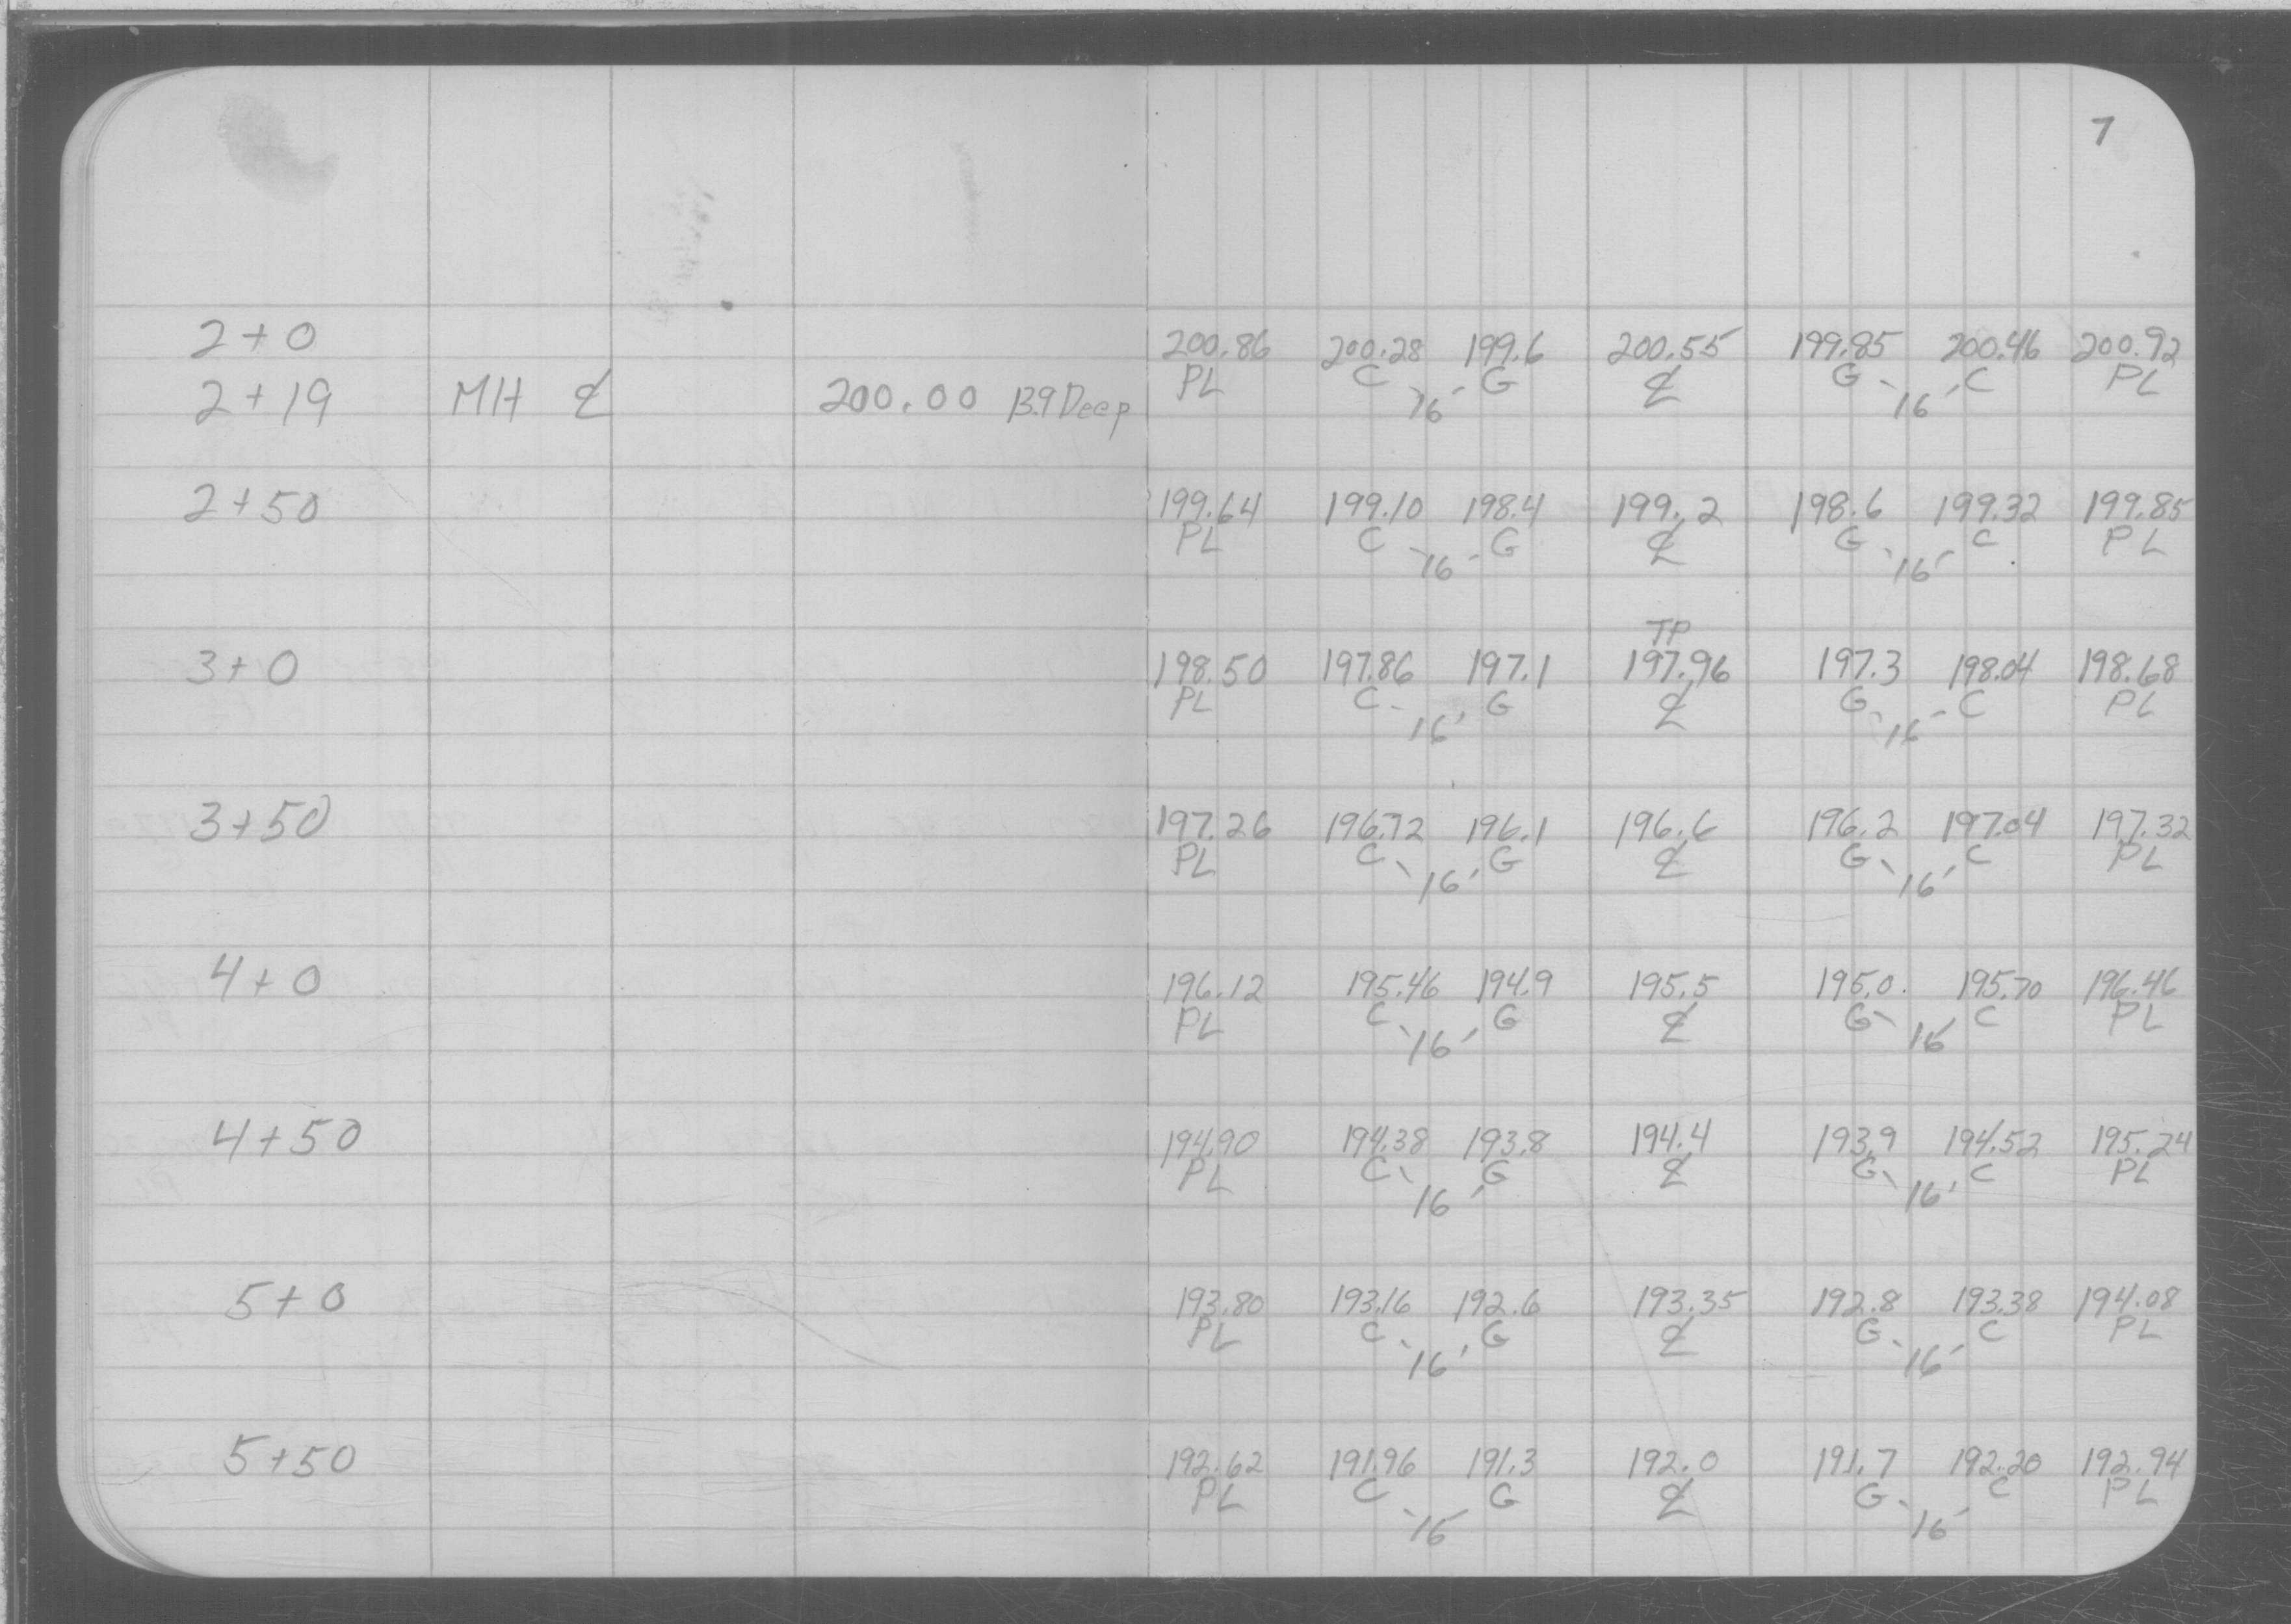 7
2+0 200.86 200.28 199.6 200.55 199.85 200.46 200.92
PL C G ℄ G C PL
16 16
2+19 MH ℄ 200.00 13.9 Deep
2+50 199.64 199.10 198.4 199.2 198.6 199.32 199.85
PL C G ℄ G C PL
16 16
TP
3+0 198.50 197.86 197.1 197.96 197.3 198.04 198.68
PL C G ℄ G C PL
16 16
3+50 197.26 196.72 196.1 196.6 196.2 197.04 197.32
PL C G ℄ G C PL
16 16
4+0 196.12 195.46 194.9 195.5 195.0 195.70 196.46
PL C G ℄ G C PL
16 16
4+50 194.90 194.38 193.8 194.4 193.9 194.52 195.24
PL C G ℄ G C PL
16 16
5+0 193.80 193.16 192.6 193.35 192.8 193.38 194.08
PL C G ℄ G C PL
16 16
5+50 192.62 191.96 191.3 192.0 191.7 192.20 192.94
PL C G ℄ G C PL
16 16